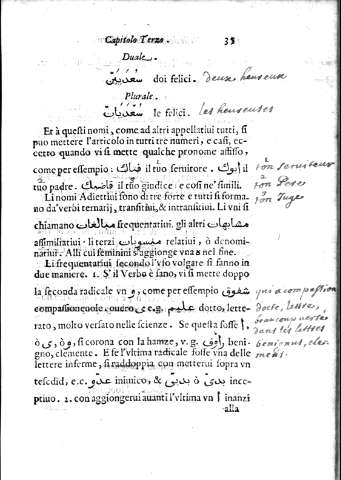 Capitolo Terzo. 35
Duale.
سُعْدَيَيْن doi felici. deux heureux
Plurale.
سُعْدَيَات le felici. les heureuses
Et à questi nomi, come ad altri appellatiui tutti, si
puo mettere l'articolo in tutti tre numeri, e casi, ec-
cetto quando vi si mette qualche pronome affisso,
come per esempio: فتاك il tuo seruitore. ابوك il ton serviteur
tuo padre. قاضيك il tuo giudice: e cosi ne' simili. ton Pere
Li nomi Adiettiui sono di tre forte e tutti si forma- ton Juge
no da' verbi ternarij, transitiui, & intransitiui. Li vni si
chiamano مبالغات frequentatiui. gli altri مشابهات
assimilatiui: li terzi منسوبات relatiui, ò denomi-
natiui. Alli cui feminini s'aggionge vna ة nel fine.
Li frequentatiui secondo l'vso volgare si fanno in
due maniere. 1. S'il Verbo è sano, vi si mette doppo
la seconda radicale vn و, come per esempio شفوق qui a compassion
compassioneuole. ouero ي e.g. عليم dotto, lette- docte, lettré,
rato, molto versato nelle scienze. Se questa fosse ا, beaucoup versé
ò ي, ò و, si corona con la hamze, v. g. راوف, beni- dans les lettres
gno, clemente. E se l'vltima radicale fosse vna delle benignus, cle-
lettere inferme, si raddoppia con metterui sopra vn mens.
tescdid, e.c. عدو inimico, & بدي ò بدئ ince-
ptiuo. 2. con aggiongerui auanti l'vltima vn ا inanzi
alla